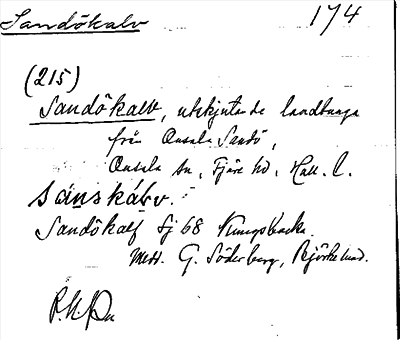 Sandökalv 174
(215)
Sandökalv, utskjutande landtunga
från Onsala Sandö,
Onsala sn, Fjäre hd, Hall. l.
Sandökalf Sj 68 Kungsbacka.
Medd. G. Söderberg, Björkelund.